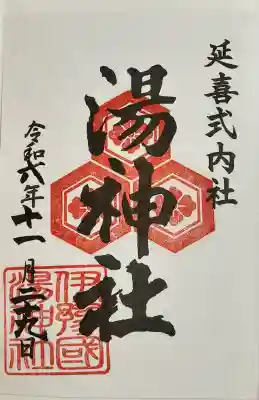 延喜式内社
湯神社
令和六年十一月二十九日
伊豫國
湯神社